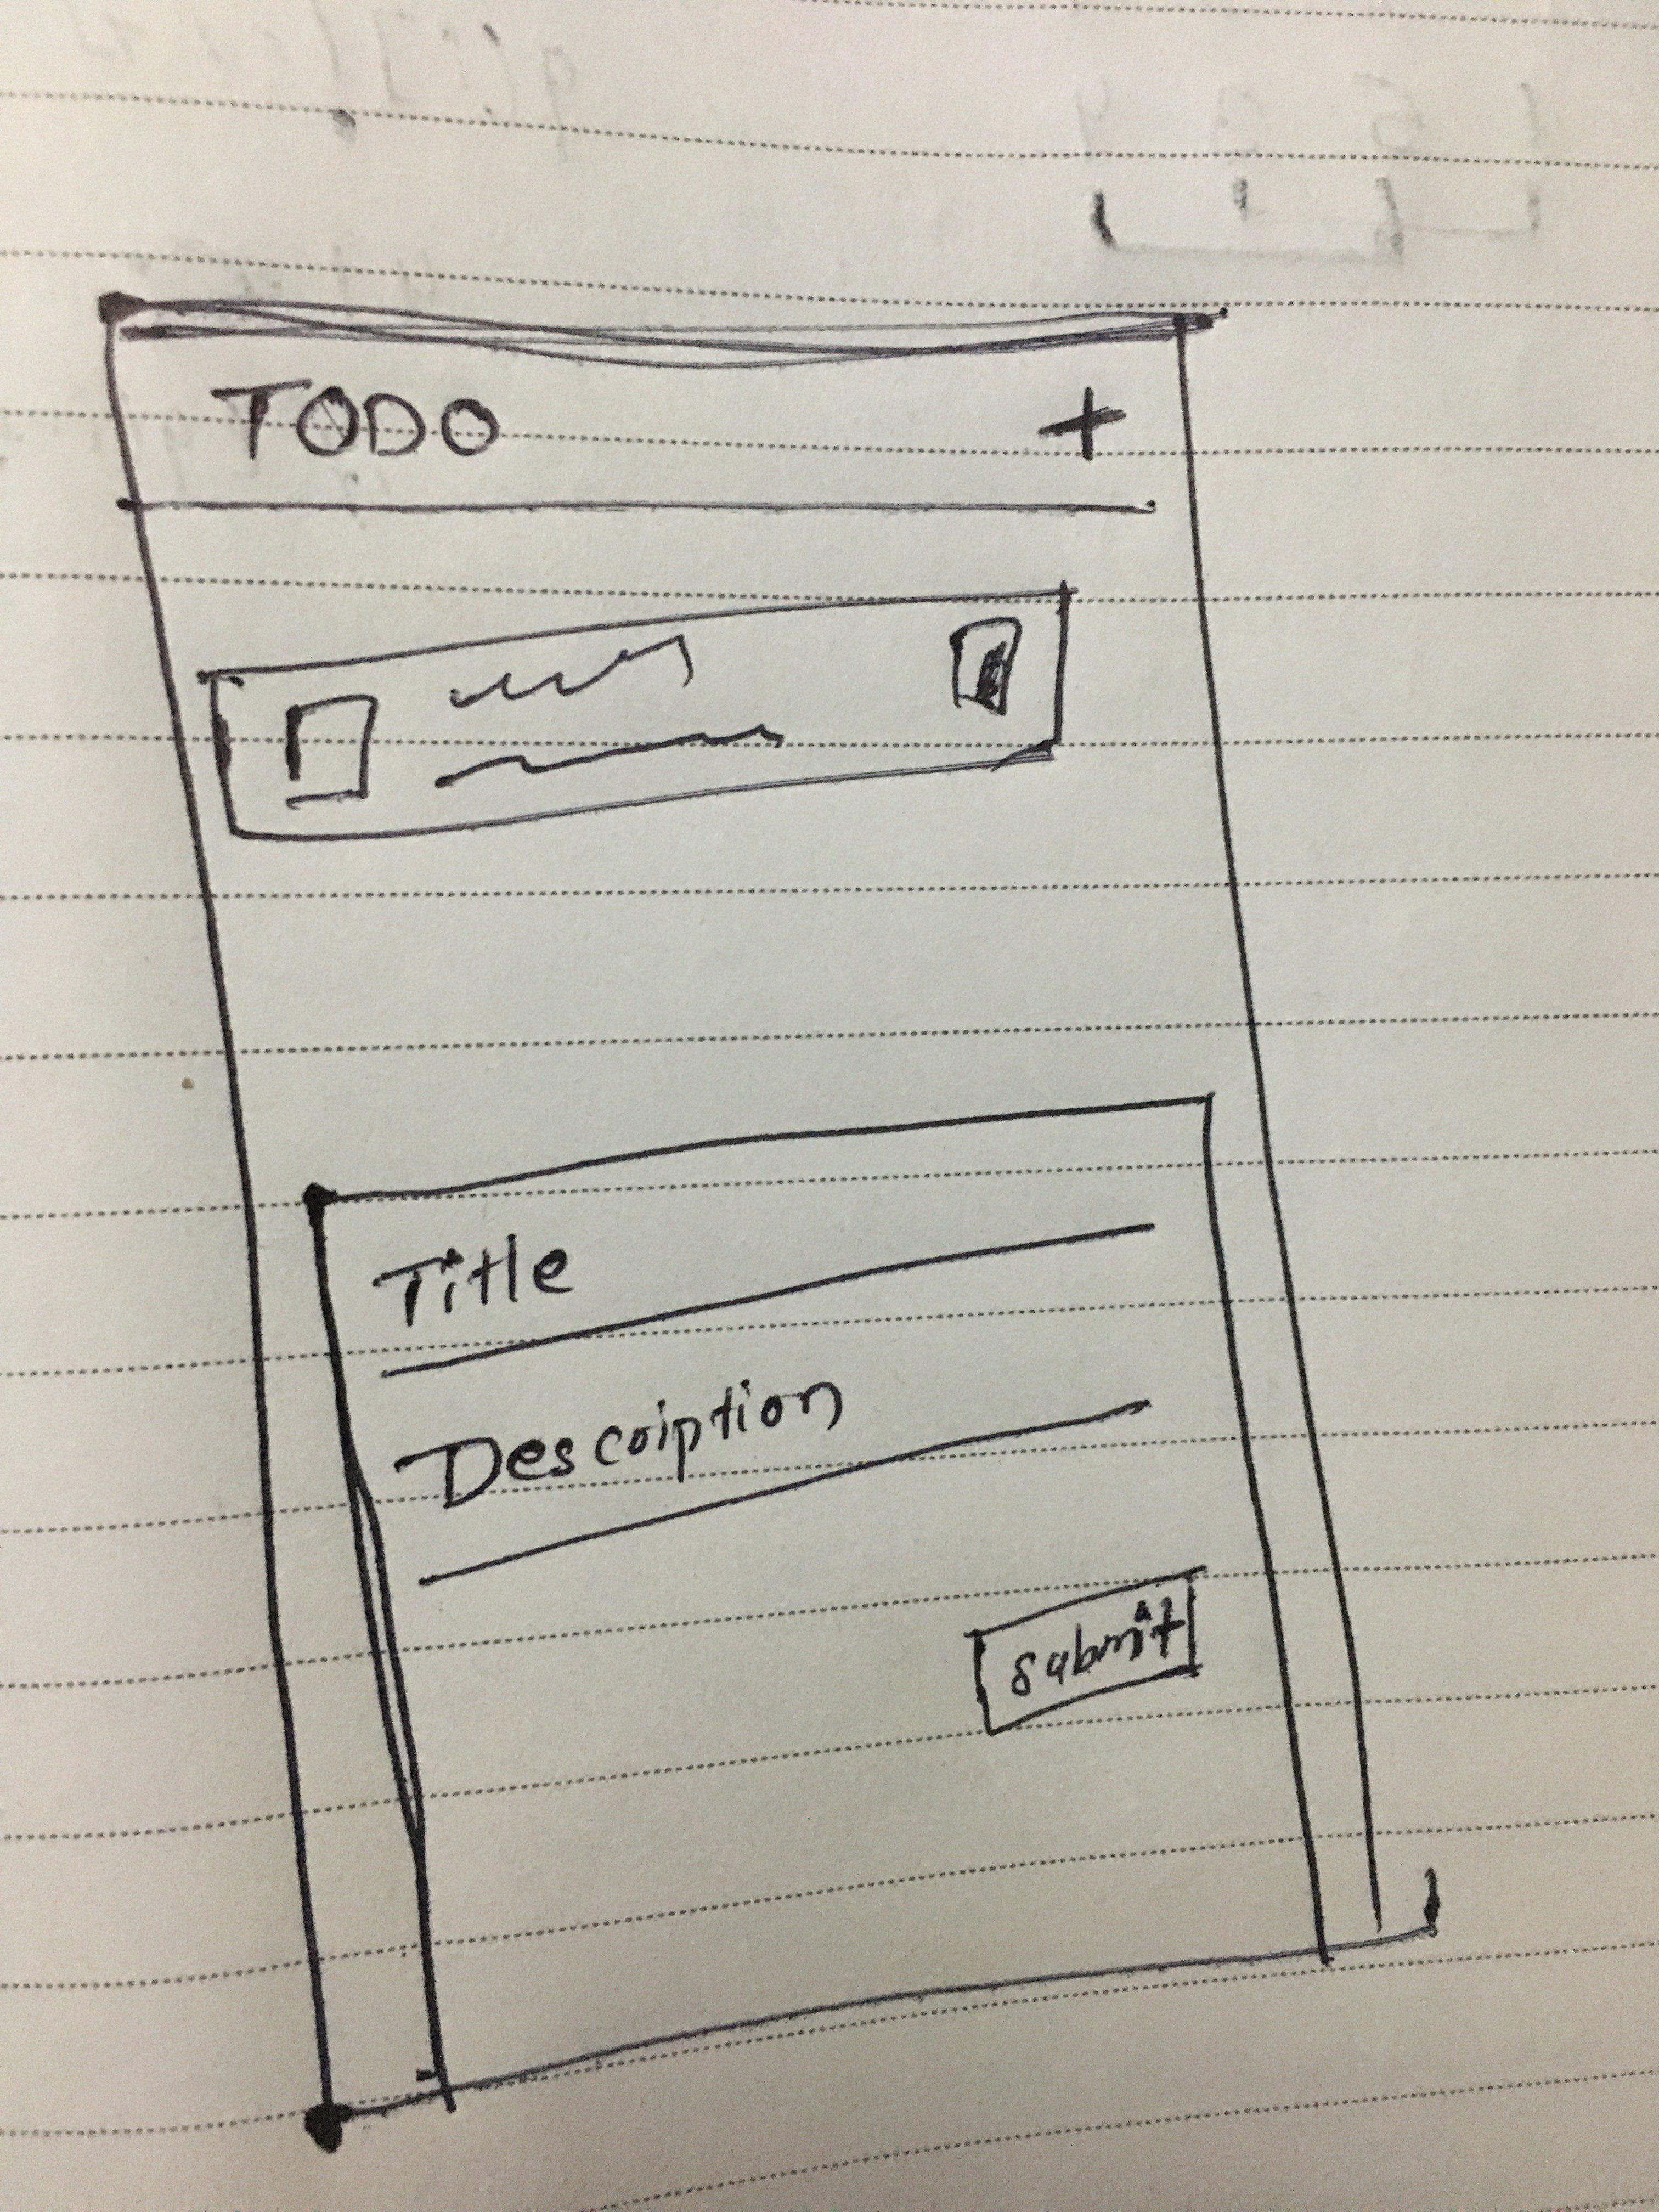 TODO +
Title
Description
submit